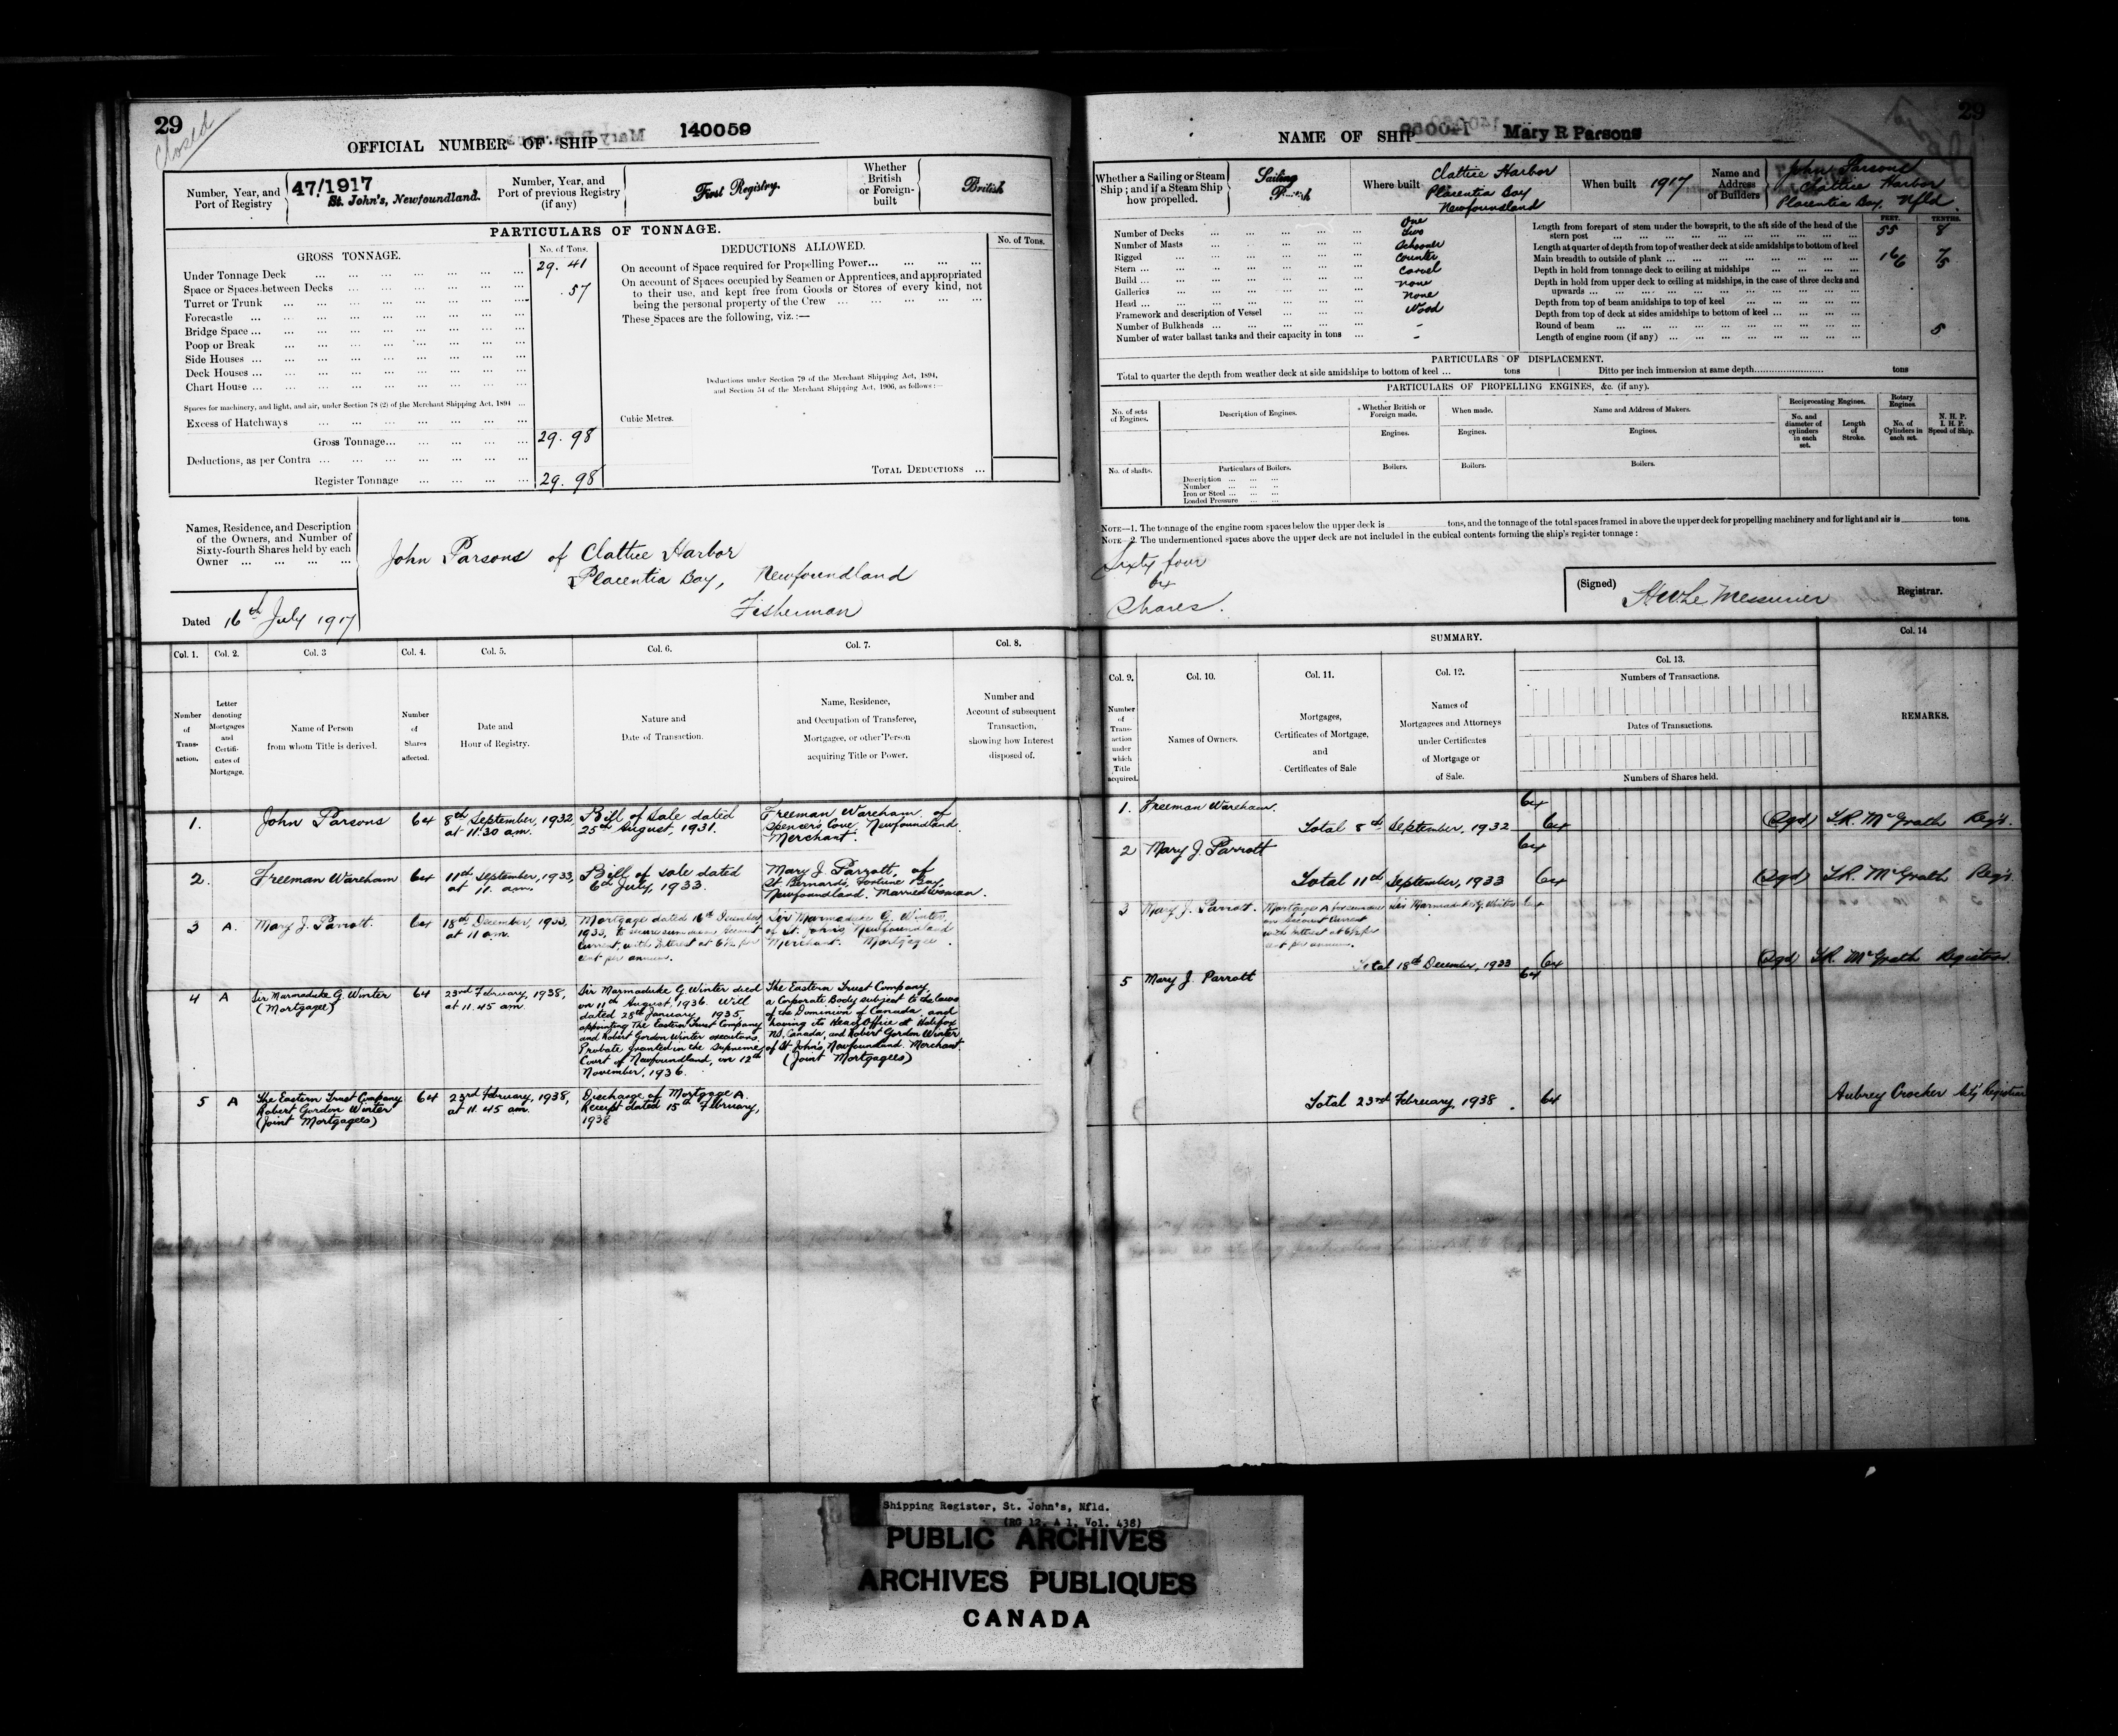 29
Closed
OFFICIAL NUMBER OF SHIP 140059
Number, Year, and
Port of Registry
47/1917
St. John's, Newfoundland.
Number, Year, and
Port of previous Registry
(if any)
First Registry.
Whether
British
or Foreign-
built
British
PARTICULARS OF TONNAGE.
GROSS TONNAGE.
No. of Tons.
Under Tonnage Deck ... 29.41
Space or Spaces between Decks ... .57
Turret or Trunk ...
Forecastle ...
Bridge Space ...
Poop or Break ...
Side Houses ...
Deck Houses ...
Chart House ...
Spaces for machinery, and light, and air, under Section 78 (2) of the Merchant Shipping Act, 1894 ...
Excess of Hatchways ...
Gross Tonnage... 29.98
Deductions, as per Contra ...
Register Tonnage ... 29.98
DEDUCTIONS ALLOWED.
No. of Tons.
On account of Space required for Propelling Power...
On account of Spaces occupied by Seamen or Apprentices, and appropriated
to their use, and kept free from Goods or Stores of every kind, not
being the personal property of the Crew ...
These Spaces are the following, viz.:—
Deductions under Section 79 of the Merchant Shipping Act, 1894,
and Section 54 of the Merchant Shipping Act, 1906, as follows:—
Cubic Metres.
TOTAL DEDUCTIONS ...
Names, Residence, and Description
of the Owners, and Number of
Sixty-fourth Shares held by each
Owner ...
John Parsons of Clattice Harbor
Placentia Bay, Newfoundland
Fisherman
Dated 16th July 1917
Col. 1.
Col. 2.
Col. 3
Col. 4.
Col. 5.
Col. 6.
Col. 7.
Col. 8.
Number
of
Trans-
action.
Letter
denoting
Mortgages
and
Certifi-
cates of
Mortgage.
Name of Person
from whom Title is derived.
Number
of
Shares
affected.
Date and
Hour of Registry.
Nature and
Date of Transaction.
Name, Residence,
and Occupation of Transferee,
Mortgagee, or other Person
acquiring Title or Power.
Number and
Account of subsequent
Transaction,
showing how Interest
disposed of.
1.
John Parsons
64
8th September, 1932,
at 11:30 am.
Bill of Sale dated
25th August, 1931.
Freeman Wareham of
Spencer's Cove Newfoundland.
Merchant.
2.
Freeman Wareham
64
11th September, 1933,
at 11. am.
Bill of sale dated
6th July, 1933.
Mary J. Parrott, of
St Bernard's, Fortune Bay,
Newfoundland. Married woman.
3
A.
Mary J. Parrott.
64
18th December, 1933,
at 11 am.
Mortgage dated 16th December
1933, to secure sum on account
current, with interest at 6½ per
cent per annum.
Sir Marmaduke G. Winter,
of St. John's, Newfoundland
Merchant. Mortgagee.
4
A
Sir Marmaduke G. Winter
(Mortgagee)
64
23rd February, 1938,
at 11.45 am.
Sir Marmaduke G. Winter died
on 11th August, 1936. Will
dated 28th January 1935,
appointing The Eastern Trust Company
and Robert Gordon Winter executors.
Probate granted in the Supreme
Court of Newfoundland, on 12th
November, 1936.
The Eastern Trust Company,
a Corporate Body subject to the laws
of the Dominion of Canada, and
having its Head Office at Halifax
N.S, Canada, and Robert Gordon Winter
of St John's, Newfoundland. Merchant.
(Joint Mortgagees)
5
A
The Eastern Trust Company
Robert Gordon Winter
(Joint Mortgagees)
64
23rd February, 1938,
at 11.45 am.
Discharge of Mortgage A.
Receipt dated 15th February,
1938
29
NAME OF SHIP Mary R Parsons
Whether a Sailing or Steam
Ship; and if a Steam Ship
how propelled.
Sailing
Where built
Clattice Harbor
Placentia Bay
Newfoundland
When built 1917
Name and
Address
of Builders
John Parsons
Clattice Harbor
Placentia Bay, Nfld.
Number of Decks ... One
Number of Masts ... Two
Rigged ... Schooner
Stern ... Counter
Build ... Carvel
Galleries ... None
Head ... None
Framework and description of Vessel ... Wood
Number of Bulkheads ... -
Number of water ballast tanks and their capacity in tons ... -
FEET. TENTHS.
Length from forepart of stem under the bowsprit, to the aft side of the head of the
stern post ... 55 8
Length at quarter of depth from top of weather deck at side amidships to bottom of keel
Main breadth to outside of plank ... 16 7
Depth in hold from tonnage deck to ceiling at midships ... 6 5
Depth in hold from upper deck to ceiling at midships, in the case of three decks and
upwards ...
Depth from top of beam amidships to top of keel ...
Depth from top of deck at sides amidships to bottom of keel ...
Round of beam ... 5
Length of engine room (if any) ...
PARTICULARS OF DISPLACEMENT.
Total to quarter the depth from weather deck at side amidships to bottom of keel ... tons
Ditto per inch immersion at same depth... tons
PARTICULARS OF PROPELLING ENGINES, &c. (if any).
No. of sets
of Engines.
Description of Engines.
Whether British or
Foreign made.
When made.
Name and Address of Makers.
Reciprocating Engines.
Rotary
Engines.
No. and
diameter of
cylinders
in each
set.
Length
of
Stroke.
No. of
Cylinders in
each set.
N. H. P.
I. H. P.
Speed of Ship.
Engines.
Engines.
Engines.
No. of shafts.
Particulars of Boilers.
Boilers.
Boilers.
Boilers.
Description ...
Number ...
Iron or Steel ...
Loaded Pressure ...
NOTE—1. The tonnage of the engine room spaces below the upper deck is tons, and the tonnage of the total spaces framed in above the upper deck for propelling machinery and for light and air is tons.
NOTE—2. The undermentioned spaces above the upper deck are not included in the cubical contents forming the ship's register tonnage:
Sixty four
64
Shares.
(Signed) H W Le Messurier Registrar.
SUMMARY.
Col. 9.
Col. 10.
Col. 11.
Col. 12.
Col. 13.
Col. 14
Number
of
Trans-
action
under
which
Title
acquired.
Names of Owners.
Mortgages,
Certificates of Mortgage,
and
Certificates of Sale
Names of
Mortgagees and Attorneys
under Certificates
of Mortgage or
of Sale.
Numbers of Transactions.
Dates of Transactions.
Numbers of Shares held.
REMARKS.
1. Freeman Wareham. 64
Total 8th September, 1932 64 (Sgd) T.R. McGrath Regr.
2 Mary J. Parrott 64
Total 11th September, 1933 64 (Sgd) T.R. McGrath Regr.
3 Mary J. Parrott.
Mortgage A for sum due
on account current
with interest at 6½ per
cent per annum.
Sir Marmaduke G. Winter 64
Total 18th December, 1933 64 (Sgd) T.R. McGrath Registrar
5 Mary J. Parrott 64
Total 23rd February, 1938. 64 Aubrey Crocker Act'g Registrar
Shipping Register, St. John's, Nfld.
(RG 12, A 1, Vol. 438)
PUBLIC ARCHIVES
ARCHIVES PUBLIQUES
CANADA